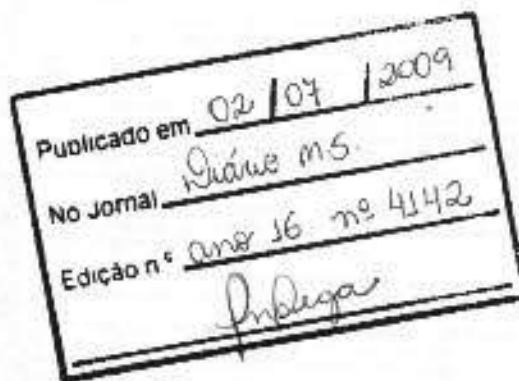 Publicado em 02 / 07 / 2009
No Jornal Diário MS.
Edição nº ano 16 nº 4142